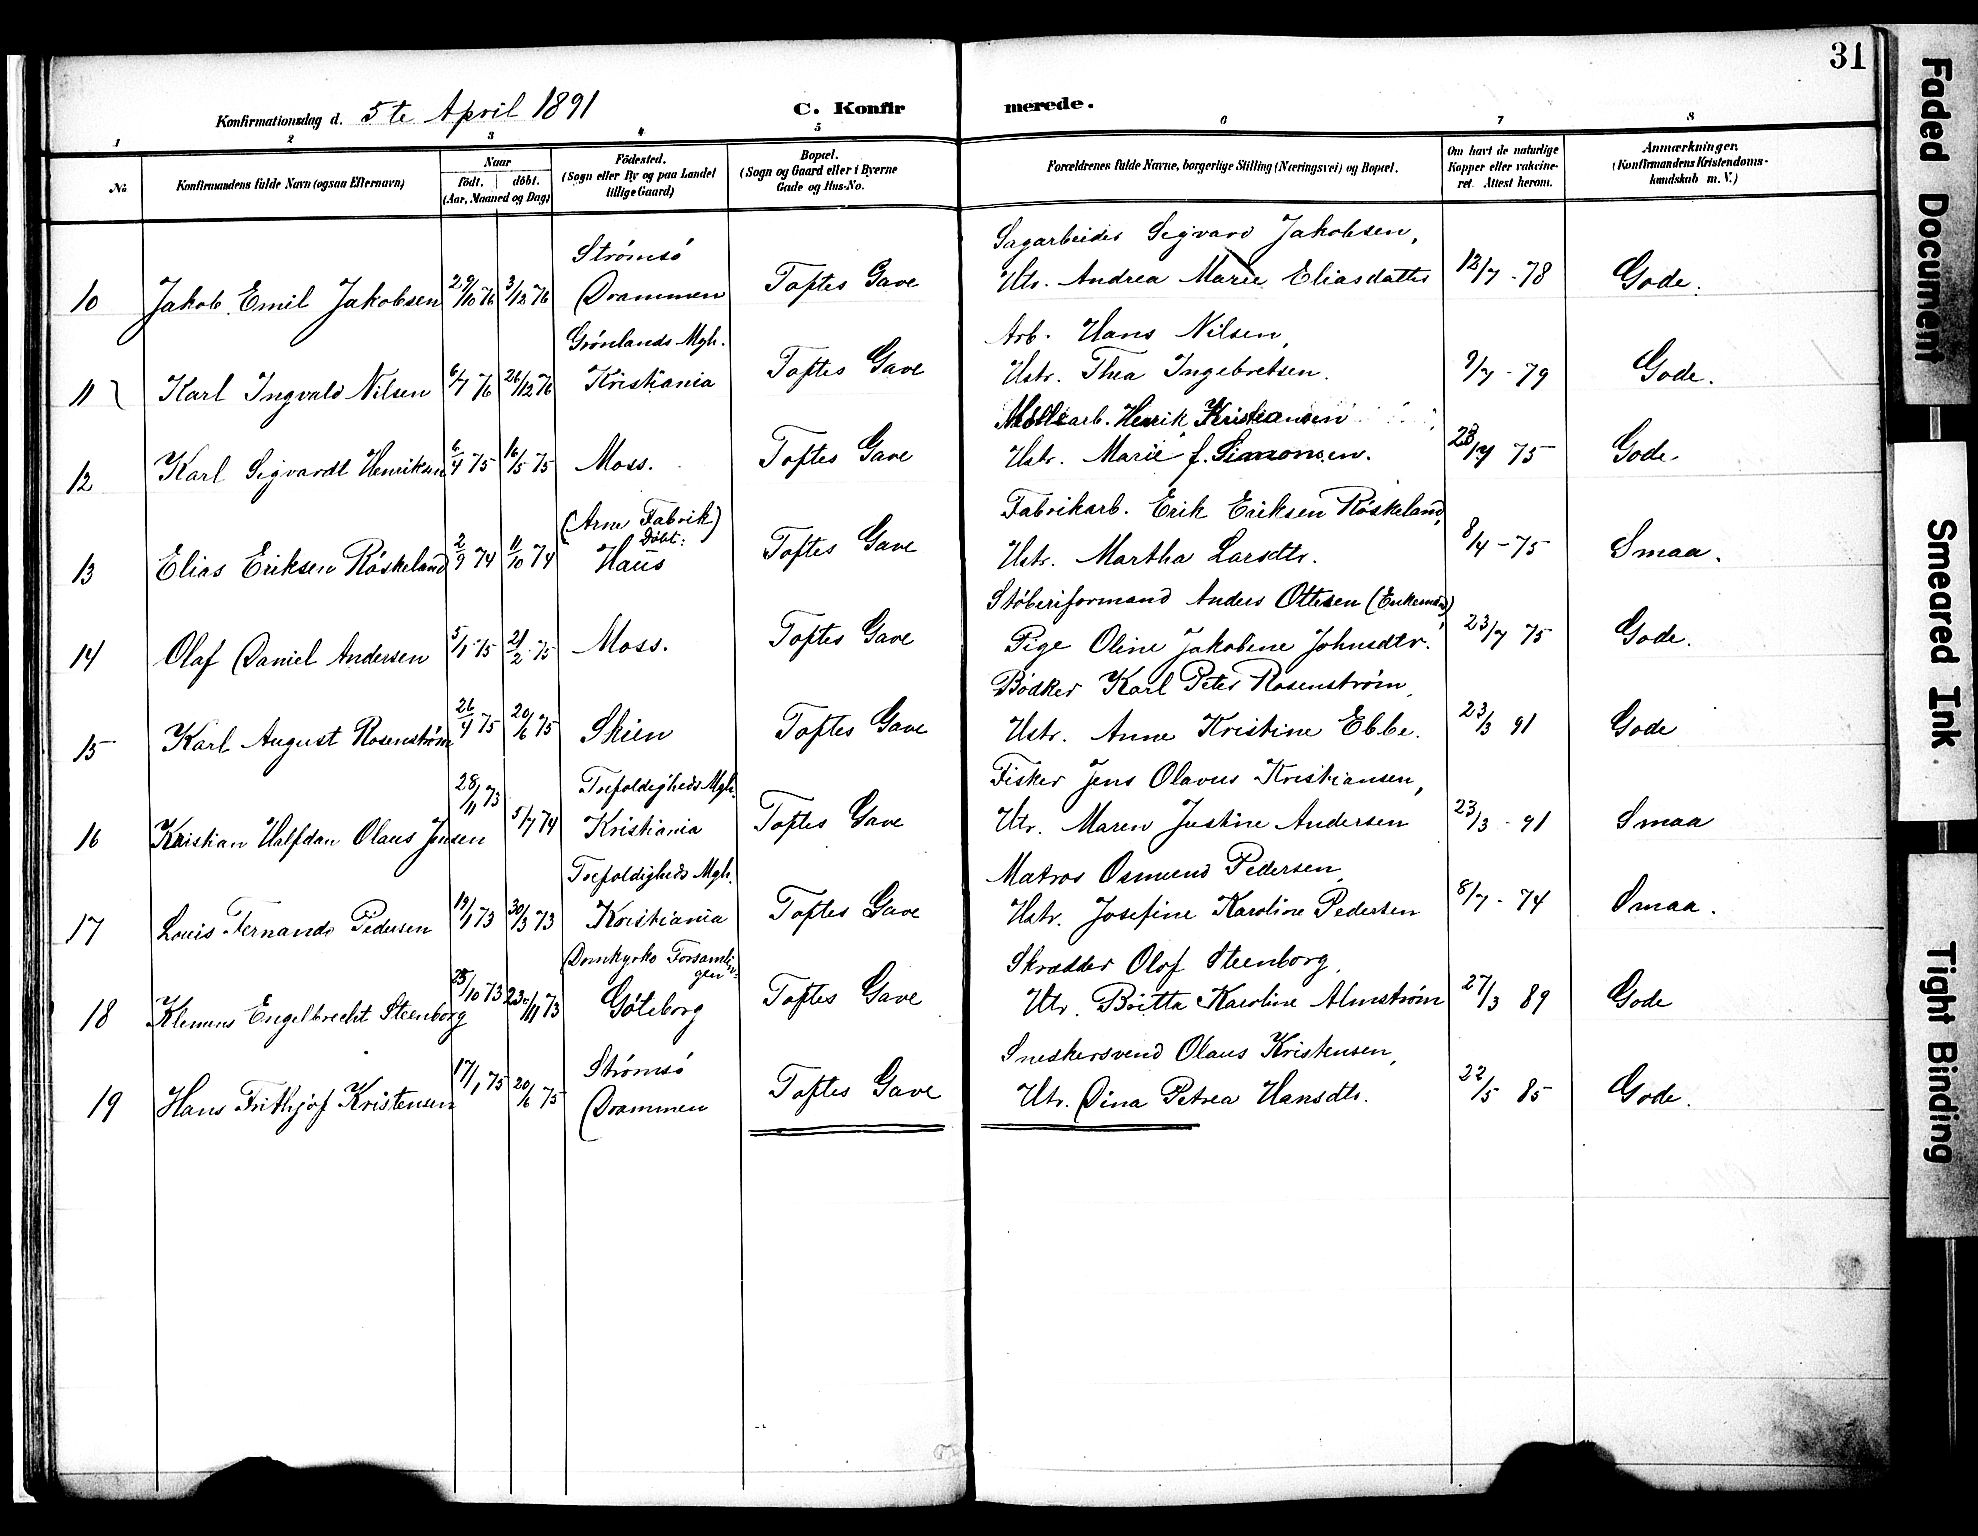 31
Konfirmationsdag d. 5te April 1891 C. Konfir merede.
1 2 3 4 5 6 7 8
No
Konfirmandens fulde Navn (ogsaa Efternavn)
Naar
født. døbt.
(Aar, Maaned og Dag)
Fødested.
(Sogn eller By og paa Landet
tillige Gaard)
Bopæl.
(Sogn og Gaard eller i Byerne
Gade og Hus-No.
Forældrenes fulde Navne, borgerlige Stilling (Næringsvei) og Bopæl.
Om havt de naturlige
Kopper eller vakcine-
ret. Attest herom.
Anmærkninger.
(Konfirmandens Kristendoms-
kundskab m. V.)
Sagarbeider Sigvard Jakobsen,
Strømsø
10 Jakob Emil Jakobsen 29/10 76 3/12 76 Drammen Toftes Gave Utr. Andrea Marie Eliasdatter 12/7 - 78 Gode.
Grønlands Mgh. Arb. Hans Nilsen,
11 Karl Ingvald Nilsen 6/7 76 26/12 76 Kristiania Toftes Gave Hstr. Thea Ingebretsen. 9/7 - 79 Gode.
arb. Henrik Kristiansen
12 Karl Sigvardt Henriksen 6/4 75 16/5 75 Moss. Toftes Gave Hstr. Marie f. Simonsen. 23/7 75 Gode.
(Arne Fabrik) Fabrikarb. Erik Eriksen Røskeland,
Døbt:
13 Elias Eriksen Røskeland 2/9 74 11/10 74 Haus Toftes Gave Hstr. Martha Larsdtr. 8/4 - 75 Smaa.
Støberiformand Anders Ottesen (Enkemand),
14 Olaf Daniel Andersen 5/1 - 75 21/2 - 75 Moss. Toftes Gave Pige Oline Jakobine Johnsdtr. 23/7 75 Gode.
Bødker Karl Peter Rosenstrøm,
15 Karl August Rosenstrøm 26/4 75 20/6 75 Skien Toftes Gave Hstr. Anne Kristine Ebbe. 23/3 91 Gode
Trefoldigheds Mgh. Fisker Jens Olavus Kristiansen,
16 Kristian Halfdan Olaus Jensen 28/11 73 5/7 74 Kristiania Toftes Gave Utr. Maren Justine Andersen 23/3 - 91 Smaa
Trefoldigheds Mgh. Matros Osmund Pedersen,
17 Louis Fernando Pedersen 19/1 73 30/3 73 Kristiania Toftes Gave Hstr. Josefine Karoline Pedersen 8/7 - 74 Smaa.
Domkyrko Forsamlin-
gen Skrædder Olof Steenborg,
18 Klemens Engelbrecht Steenborg 25/10 73 23/11 73 Göteborg Toftes Gave Utr. Britta Karoline Almstrøm 27/3 89 Gode
Strømsø Snedkersvend Olaus Kristensen,
19 Hans Frithjof Kristensen 17/1 75 20/6 75 Drammen Toftes Gave Utr. Dina Petrea Hansdtr. 22/5 85 Gode.
Faded Document
Smeared Ink
Tight Binding